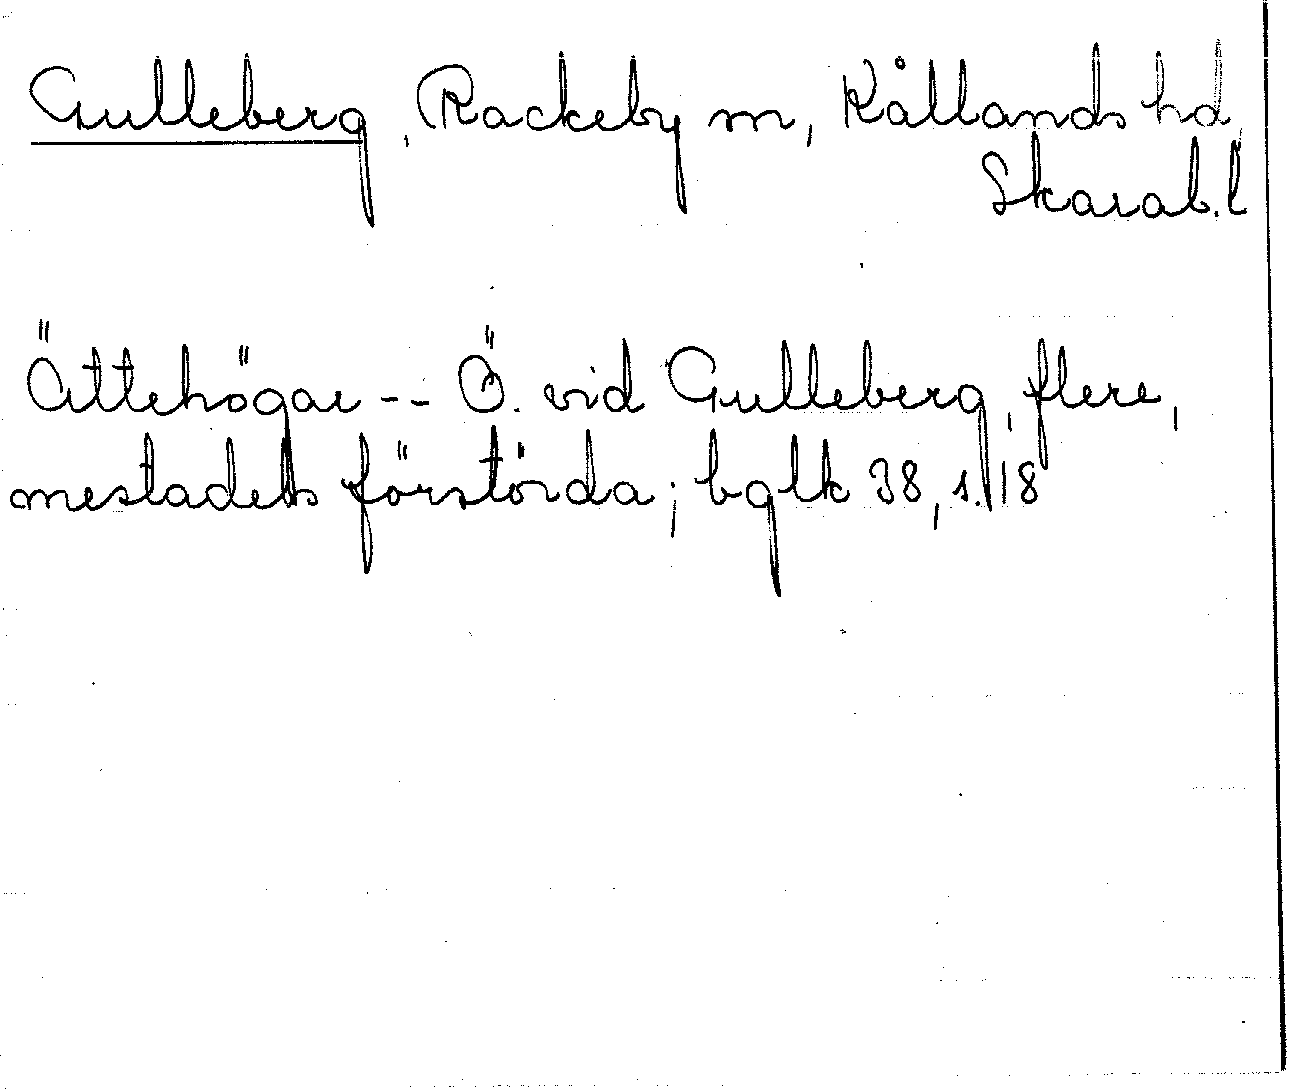 Gulleberg, Rackeby sn, Kållands hd,
Skarab. l
Ättehögar -- Ö. vid Gulleberg, flere,
mestadels förstörda; bglk 38, s. 18